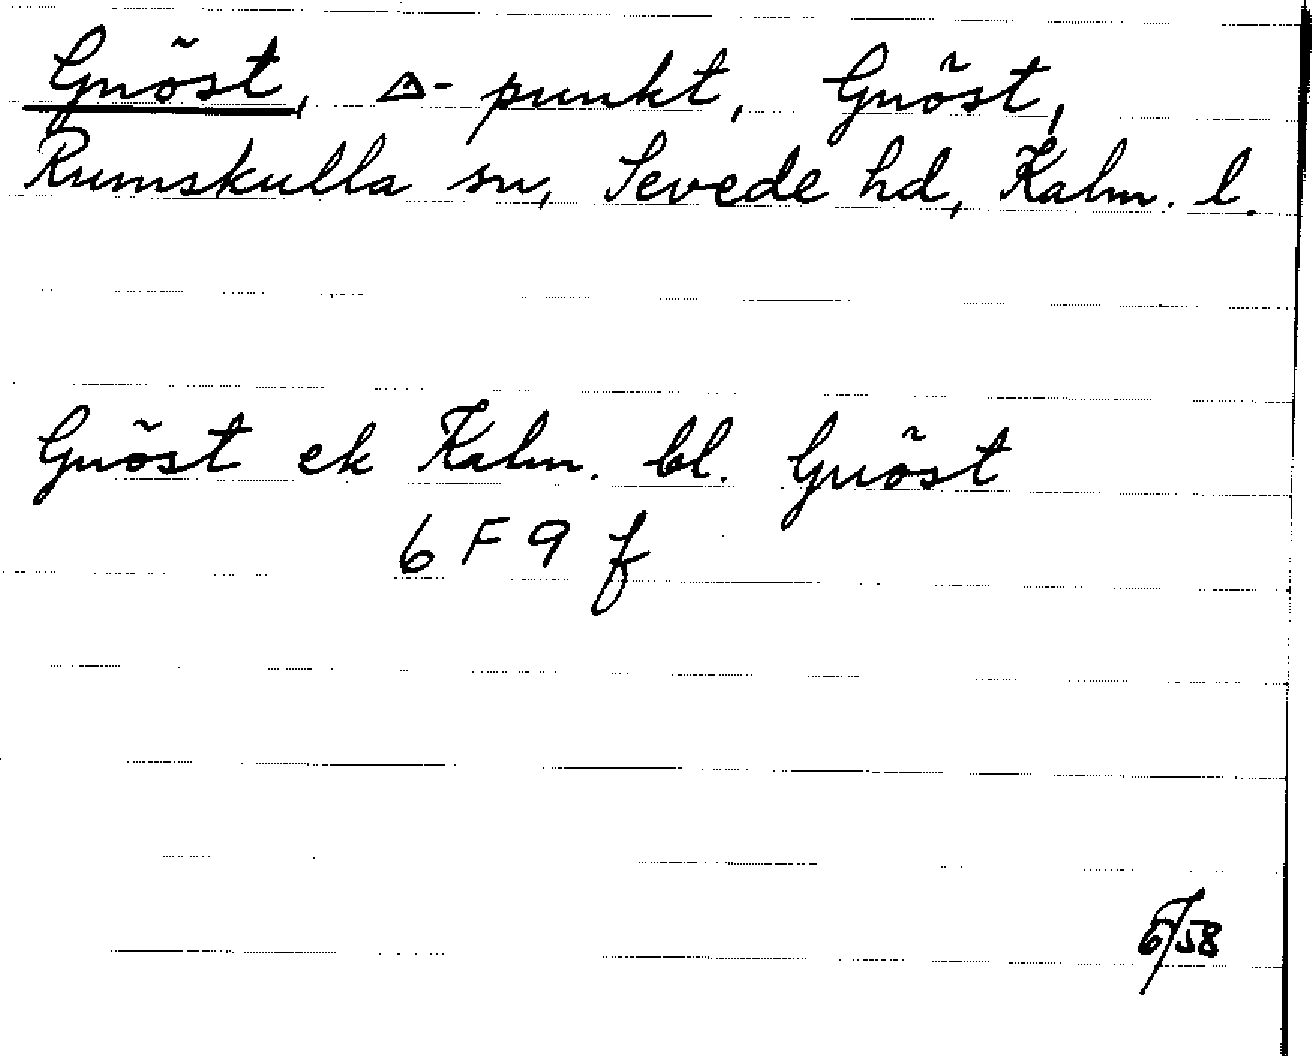 Gnöst, △-punkt, Gnöst,
Rumskulla sn, Sevede hd, Kalm. l.
Gnöst ek Kalm. bl. Gnöst
6 F 9 f
6/58